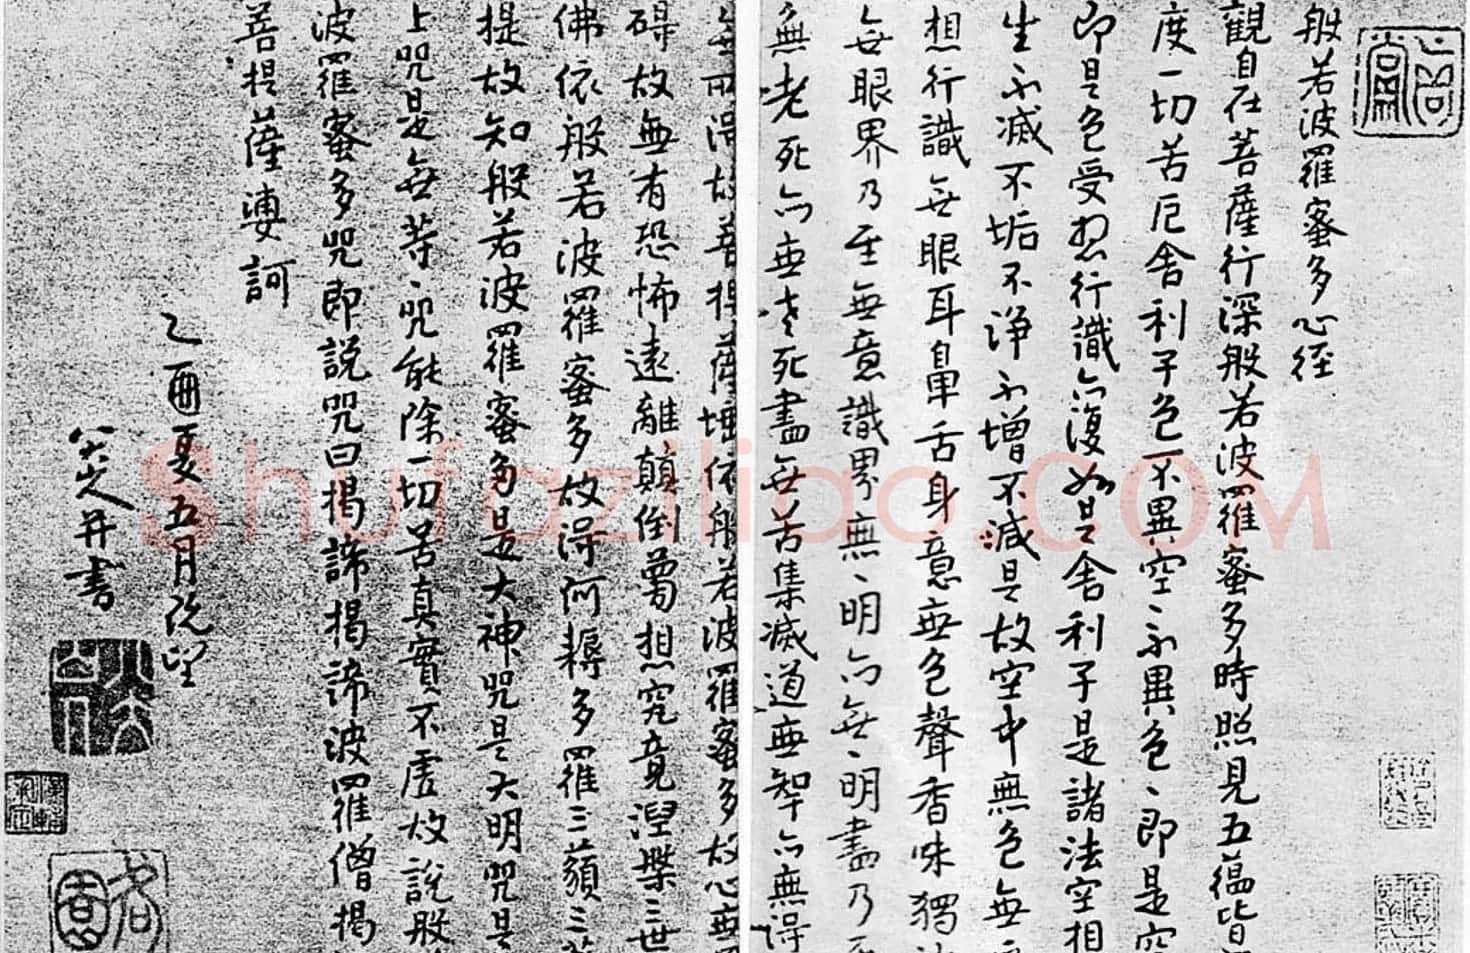 般若波羅蜜多心经
觀自在菩薩行深般若波羅蜜多時照見五蕴皆
度一切苦厄舍利子色不異空不異色、即是空
即是色受想行識亦復如是舍利子是諸法空相
生不滅不垢不净不增不減是故空中無色無
想行識無眼耳鼻舌身意無色聲香味觸
無眼界乃至無意識界無、明亦無、明盡乃至
無老死亦無老死盡無苦集滅道無智亦無得
無所得故菩提薩埵依般若波羅蜜多故心無
碍故無有恐怖遠離顛倒夢想究竟涅槃三世
佛依般若波羅蜜多故得阿耨多羅三藐三菩
提故知般若波羅蜜多是大神咒是大明咒是
上咒是無等、咒能除一切苦真實不虚故說般
波羅蜜多咒即說咒曰揭諦揭諦波羅僧揭
菩提薩婆訶
乙酉夏五月既望
八大山人并書
Shufaziliao.COM